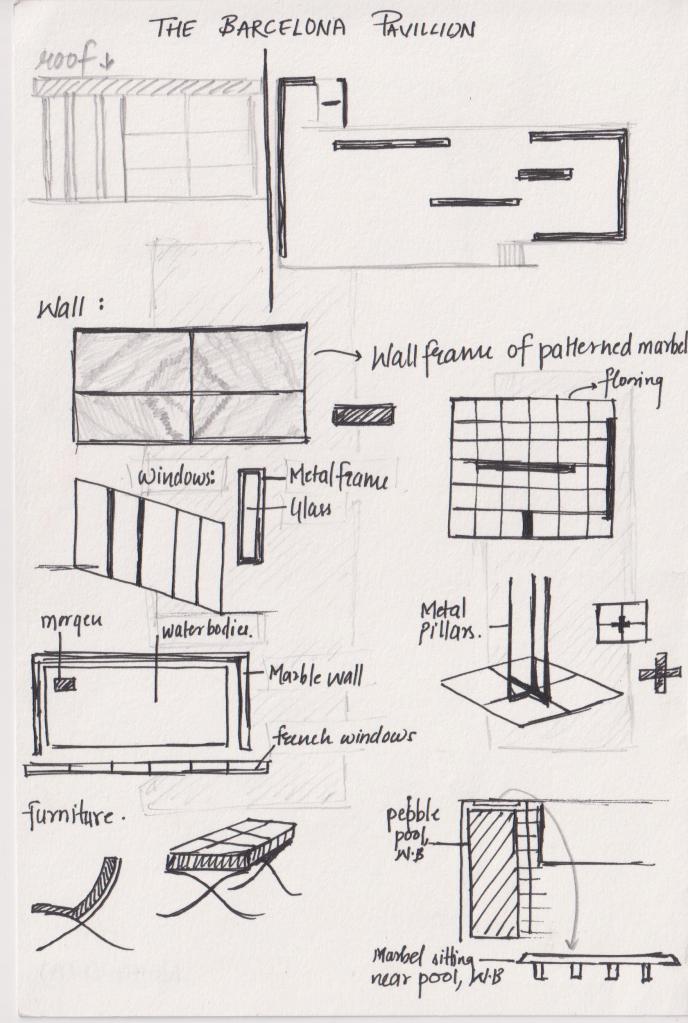 THE BARCELONA PAVILLION
roof
Wall :
Wall frame of patterned marbel
flooring
windows:
Metal frame
Glass
morgen
waterbodies.
Metal
Pillars.
Marble wall
french windows
furniture.
pebble
pool,
W.B
Marbel sitting
near pool, W.B